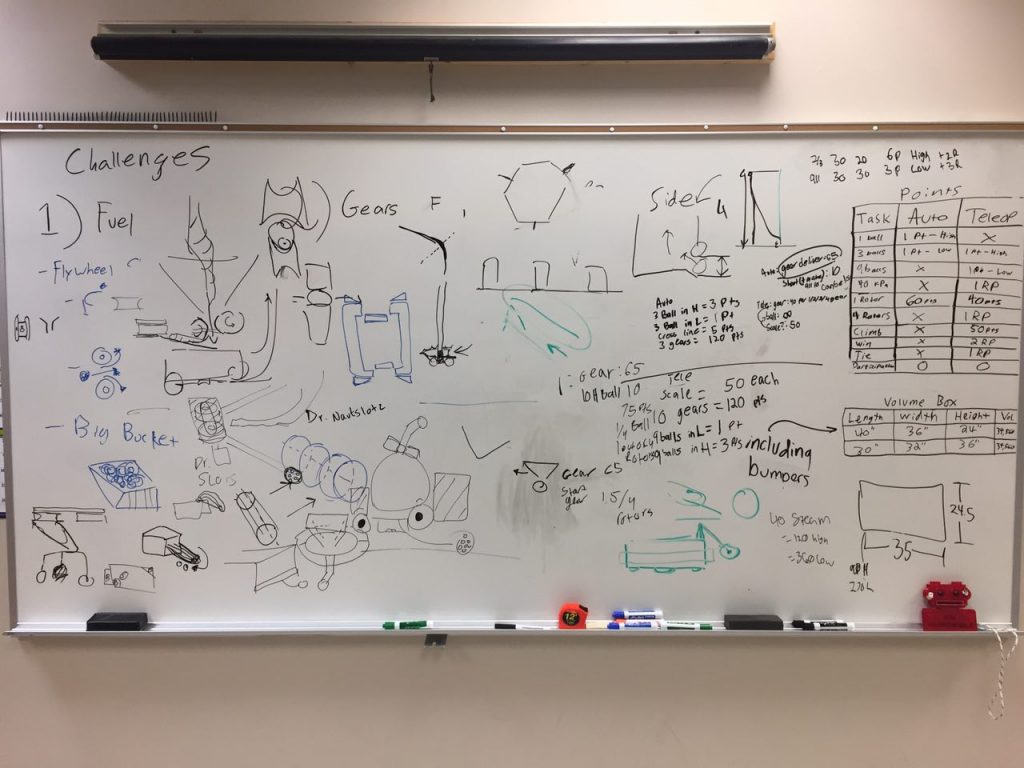 Challenges
1) Fuel
- Flywheel
- Big Bucket
Gears
F
Dr. Nautslotz
Dr.
Slors
Side
4
Auto
3 Ball in H = 3 Pts
3 Ball in L = 1 Pt
Cross line = 5 pts
3 gears = 120 pts
Auto: gear deliver: 65
Ball: ∞
Scale: 50
1: Gear: 65
10 H Ball 10
75 Pts
1/4 Ball
Tele
Scale = 50 each
10 gears = 120 pts
9 balls in L = 1 pt
9 balls in H = 3 Pts
including
bumpers
Gear 65
Start
gear
1.5/4
rotors
40 Steam
= 120 high
= 360 low
7/3 30 20 6P High +2R
9/11 30 30 3P Low +3R
Points
Task Auto Teleop
1 ball 1 Pt - High X
3 balls 1 Pt - Low 1 Pt - High
9 balls X 1 Pt - Low
40 kPa X 1 RP
1 Rotor 60 pts 40 pts
4 Rotors X 1 RP
Climb X 50 pts
Win X 2 RP
Tie X 1 RP
Participation 0 0
Volume Box
Length Width Height Vol
40" 36" 24"
30" 32" 36"
24.5
35
90 H
270 L
12'